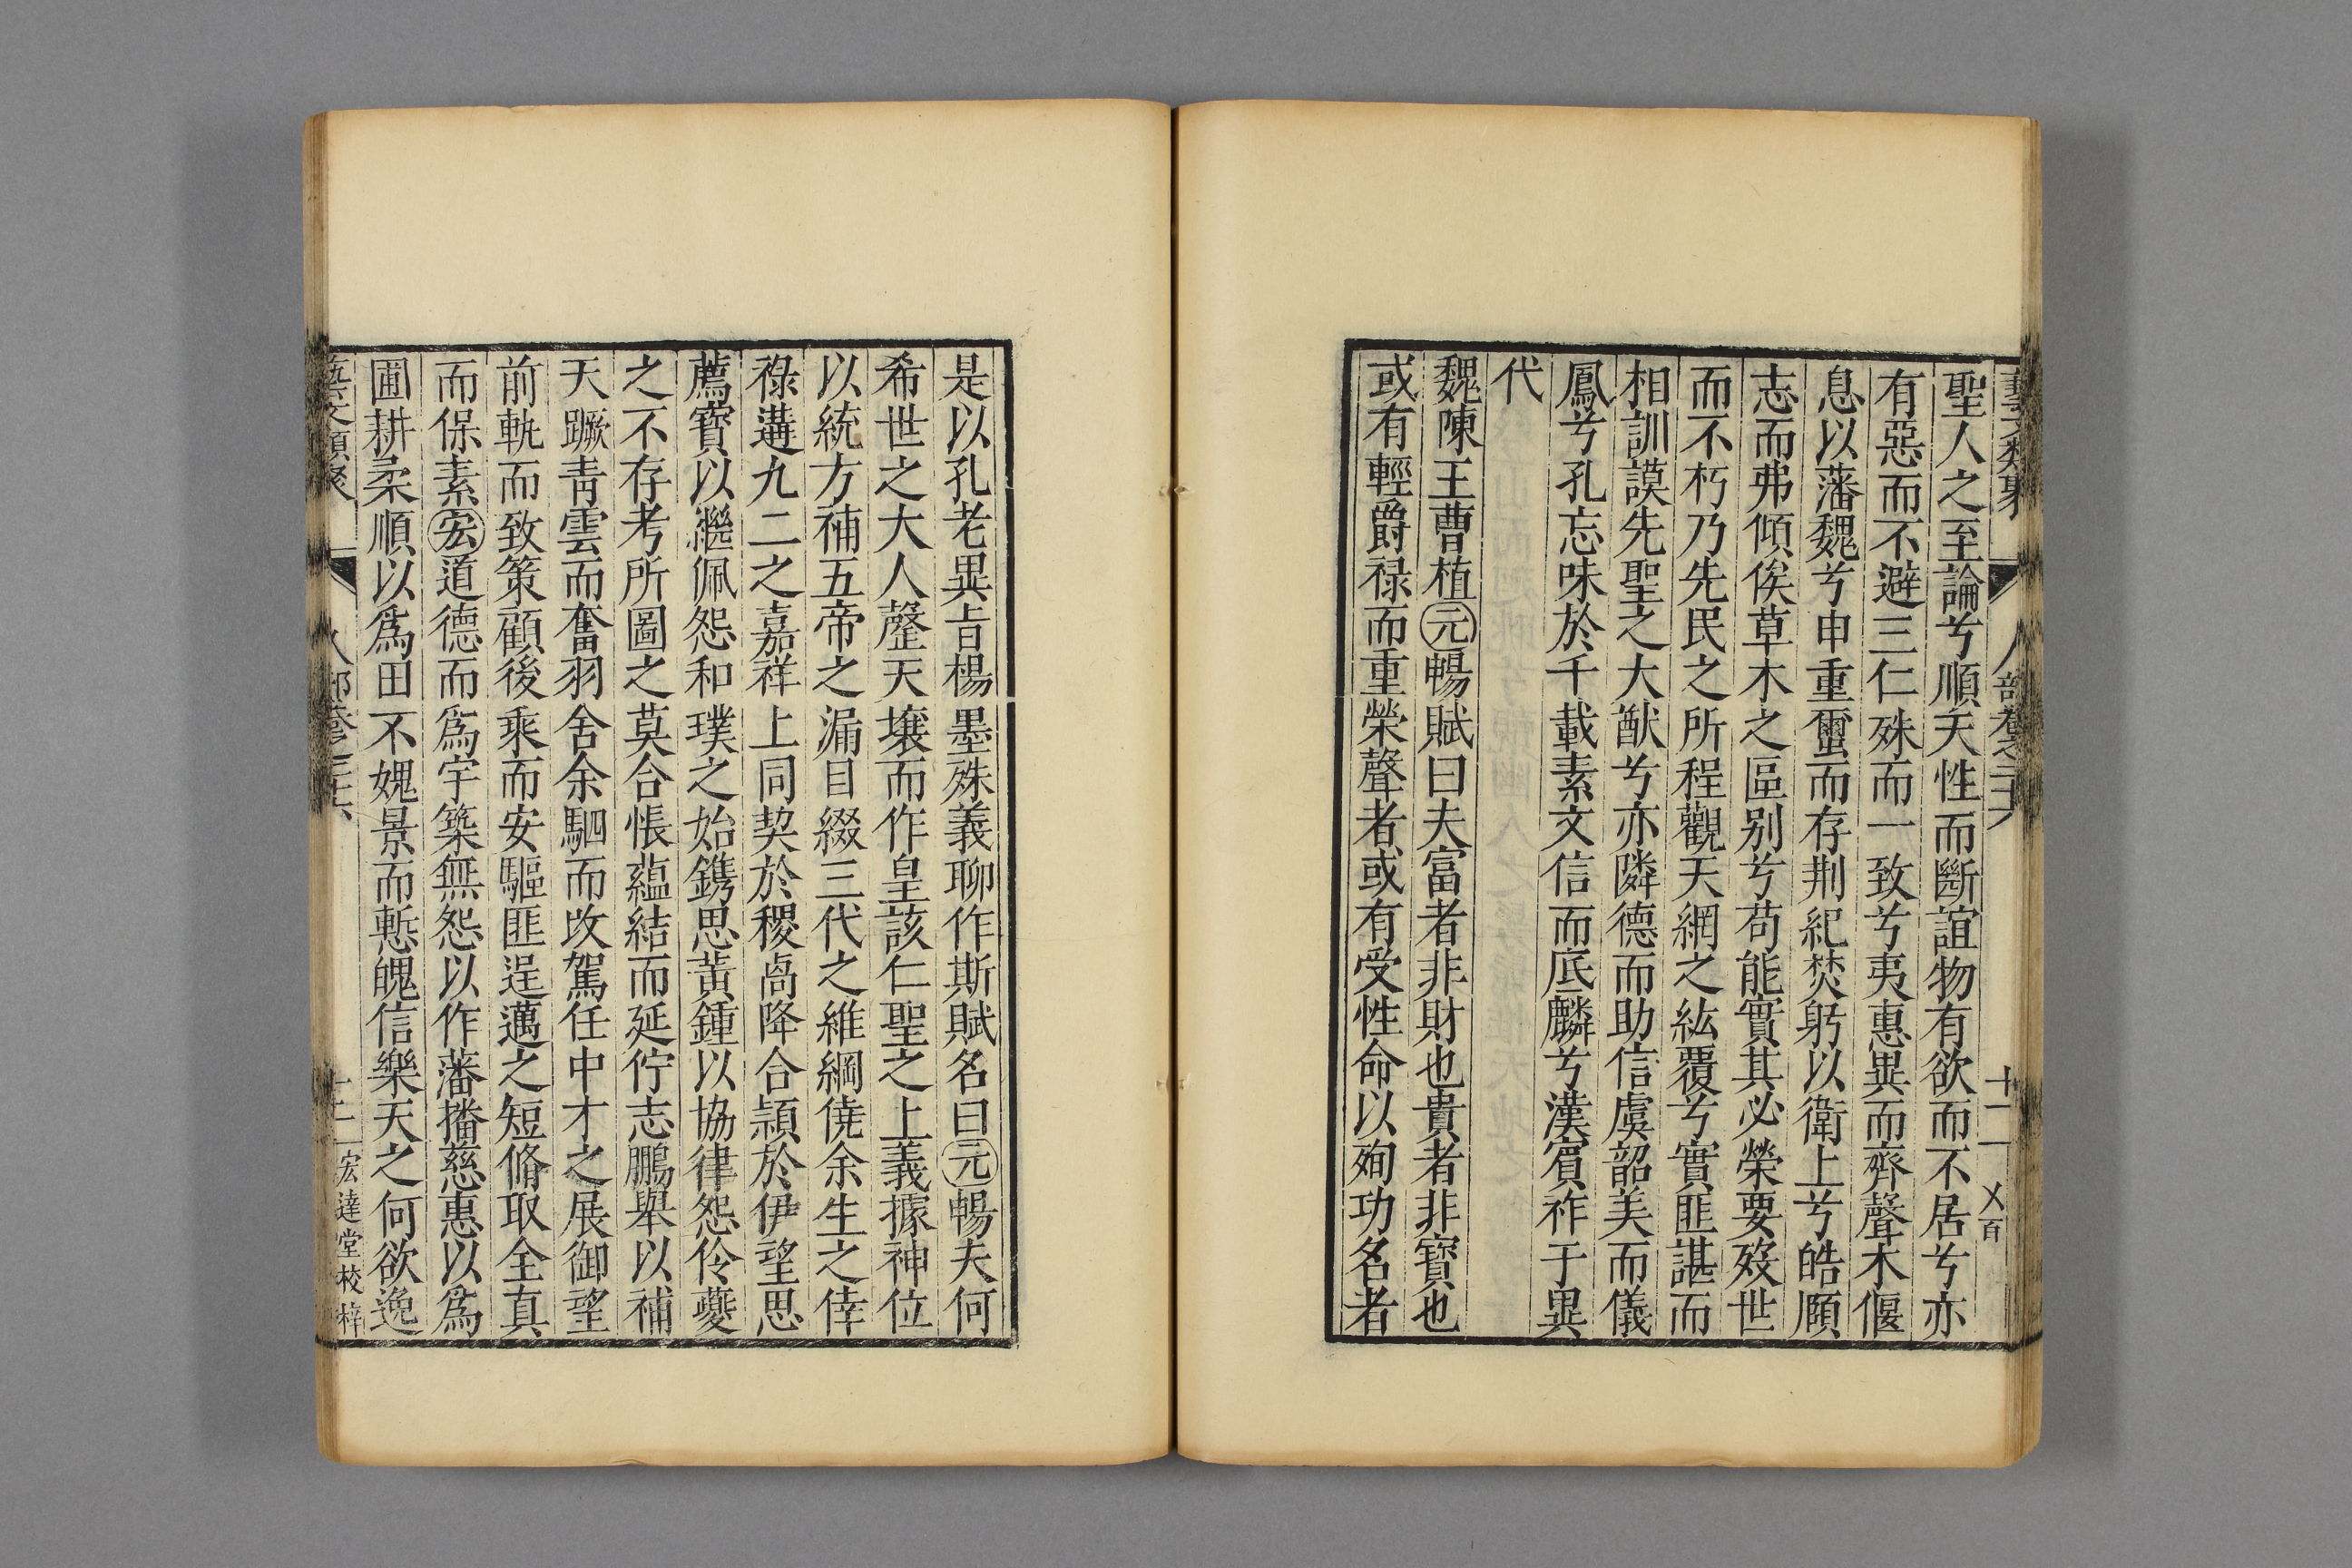 聖人之至論兮順天性而斷誼物有欲而不居兮亦
有惡而不避三仁殊而一致兮夷惠異而齊聲木偃
息以藩魏兮申重繭而存荆紀焚躬以衛上兮皓頤
志而弗傾俟草木之區别兮苟能實其必榮要殁世
而不朽乃先民之所程觀天網之紘覆兮實匪諶而
相訓謨先聖之大猷兮亦隣德而助信虞韶美而儀
鳳兮孔忘味於千載素文信而底麟兮漢賔祚于異
代
魏陳王曹植元暢賦曰夫富者非財也貴者非寶也
或有輕爵禄而重榮聲者或有受性命以殉功名者
是以孔老異㫖楊墨殊義聊作斯賦名曰元暢夫何
希世之大人罄天壤而作皇該仁聖之上義據神位
以統方補五帝之漏目綴三代之維綱僥余生之倖
祿遘九二之嘉祥上同契於稷卨降合頴於伊望思
薦寳以繼佩怨和璞之始鐫思黄鍾以協律怨伶夔
之不存考所圖之莫合悵蘊結而延佇志鵬舉以補
天蹶青雲而奮羽舍余駟而改駕任中才之展御望
前軌而致策顧後乘而安驅匪逞邁之短脩取全真
而保素宏道德而爲宇築無怨以作藩播慈惠以爲
圃耕柔順以爲田不媿景而慙魄信樂天之何欲逸
藝文類聚 人部卷之二十六 十二 宏達堂校梓